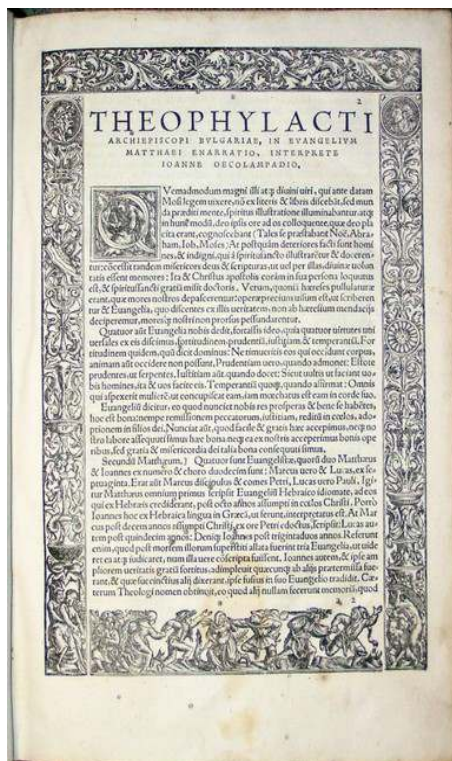 2
THEOPHYLACTI
ARCHIEPISCOPI BVLGARIAE, IN EVANGELIVM
MATTHAEI ENARRATIO, INTERPRETE
IOANNE OECOLAMPADIO.
QVemadmodum magni illi atq; diuini uiri, qui ante datam
Mosi legem uixere, nō ex literis & libris discebāt, sed mun
da præditi mente, spiritus illustratione illuminabantur. atq;
in hunc modū, deo ipsis ore ad os colloquente, quæ deo pla
cita erant, cognoscebant (Tales se præstabant Noë, Abra,
ham, Iob, Moses) At postquàm deteriores facti sunt homi
nes, & indigni, qui à spiritu sancto illustrarētur & doceren-
tur: nō est sit tandem misericors deus & scripturas, ut uel per illas, diuinæ uolun
tatis essent memores: Ita & Christus apostolis coràm in sua persona loquutus
est, & spiritus sancti gratiā misit doctoris. Verum, quoniā hæreses pullulaturæ
erant, quæ mores nostros depascerentur: operæprecium uisum est, ut scriberen
tur & Euangelia, quo discentes ex illis ueritatem, non ab hæresium mendacijs
deciperemur, mores q; nostri non prorsus pessundarentur.
Quatuor aūt Euangelia nobis dedit, fortassis ideo, quia quatuor uirtutes uni
uersales ex eis discimus, fortitudinem, prudentiā, iustitiam, & temperantiā. For
titudinem quidem, quū dicit dominus: Ne timueritis eos qui occidunt corpus,
animam aūt occidere non possunt, Prudentiam uero, quando admonet: Estote
prudentes, ut serpentes, Iustitiam aūt quando docet: Sicut uultis ut faciant uo
bis homines, ita & uos facite eis. Temperantiā quoq; quando affirmat: Omnis
qui aspexerit mulierē, ut concupiscat eam, iam mœchatus est eam in corde suo.
Euangeliū dicitur, eo quod nunciet nobis res prosperas & bene se habētes,
hoc est bona: nempe remissionem peccatorum, iustitiam, reditū in cœlos, ado-
ptionem in filios dei. Nunciat aūt, quod facile & gratis hæc accepimus. neq; no
stro labore assequuti sumus hæc bona: neq; ea ex nostris acceperimus bonis ope
ribus, sed gratia & misericordia dei talia bona consequuti sumus.
Secundū Matthæum.) Quatuor sunt Euangelistæ, quorū duo Matthæus
& Ioannes ex numero & choro duodecim sunt: Marcus uero & Lucas, ex se-
ptuaginta. Erat aūt Marcus discipulus & comes Petri, Lucas uero Pauli. Igi-
tur Matthæus omnium primus scripsit Euangeliū Hebraico idiomate, ad eos
qui ex Hebræis crediderant, post octo annos assumpti in cœlos Christi. Porrò
Ioannes hoc ex Hebraica lingua in Græcā, ut ferunt, interpretatus est. At Mar
cus post decem annos assumpti Christi, ex ore Petri edoctus, scripsit: Lucas au-
tem post quindecim annos: Deniq; Ioannes post triginta duos annos. Referunt
enim, quod post mortem illorum superstiti allata fuerint tria Euangelia, ut uide
ret ea atq; iudicaret, num illa uere cōscripta fuissent. Ioannes autem, & ipse am
pliorem ueritatis gratiā sortitus, adimpleuit quæcunq; ab alijs prætermissa fue-
rant, & quæ succinctius alij dixerant, ipse fusius in suo Euangelio tradidit. Cæ-
terum Theologi nomen obtinuit, eo quod alij nullam fecerunt memoriā, quod